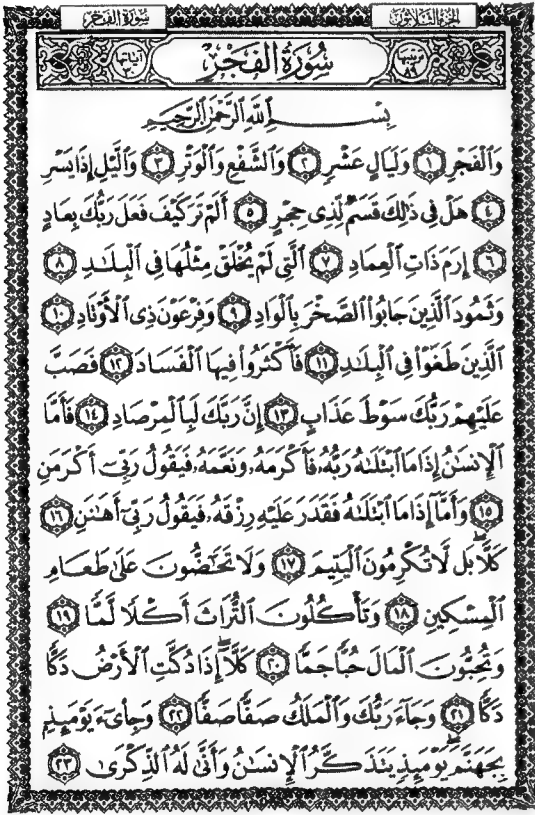 الجزء الثلاثون سورة الفجر
ترتيبها ٨٩ سُورَةُ الفَجْرِ آياتها ٣٠
بِسْمِ اللَّهِ الرَّحْمَٰنِ الرَّحِيمِ
وَالْفَجْرِ ١ وَلَيَالٍ عَشْرٍ ٢ وَالشَّفْعِ وَالْوَتْرِ ٣ وَالَّيْلِ إِذَا يَسْرِ
٤ هَلْ فِي ذَٰلِكَ قَسَمٌ لِّذِي حِجْرٍ ٥ أَلَمْ تَرَ كَيْفَ فَعَلَ رَبُّكَ بِعَادٍ
٦ إِرَمَ ذَاتِ الْعِمَادِ ٧ الَّتِي لَمْ يُخْلَقْ مِثْلُهَا فِي الْبِلَٰدِ ٨
وَثَمُودَ الَّذِينَ جَابُوا الصَّخْرَ بِالْوَادِ ٩ وَفِرْعَوْنَ ذِي الْأَوْتَادِ ١٠
الَّذِينَ طَغَوْا فِي الْبِلَٰدِ ١١ فَأَكْثَرُوا فِيهَا الْفَسَادَ ١٢ فَصَبَّ
عَلَيْهِمْ رَبُّكَ سَوْطَ عَذَابٍ ١٣ إِنَّ رَبَّكَ لَبِالْمِرْصَادِ ١٤ فَأَمَّا
الْإِنسَٰنُ إِذَا مَا ابْتَلَىٰهُ رَبُّهُۥ فَأَكْرَمَهُۥ وَنَعَّمَهُۥ فَيَقُولُ رَبِّيٓ أَكْرَمَنِ
١٥ وَأَمَّآ إِذَا مَا ابْتَلَىٰهُ فَقَدَرَ عَلَيْهِ رِزْقَهُۥ فَيَقُولُ رَبِّيٓ أَهَٰنَنِ ١٦
كَلَّا ۖ بَل لَّا تُكْرِمُونَ الْيَتِيمَ ١٧ وَلَا تَحَٰٓضُّونَ عَلَىٰ طَعَامِ
الْمِسْكِينِ ١٨ وَتَأْكُلُونَ التُّرَاثَ أَكْلًا لَّمًّا ١٩
وَتُحِبُّونَ الْمَالَ حُبًّا جَمًّا ٢٠ كَلَّآ ۖ إِذَا دُكَّتِ الْأَرْضُ دَكًّا
دَكًّا ٢١ وَجَآءَ رَبُّكَ وَالْمَلَكُ صَفًّا صَفًّا ٢٢ وَجِا۟يٓءَ يَوْمَئِذٍۭ
بِجَهَنَّمَ ۚ يَوْمَئِذٍ يَتَذَكَّرُ الْإِنسَٰنُ وَأَنَّىٰ لَهُ الذِّكْرَىٰ ٢٣